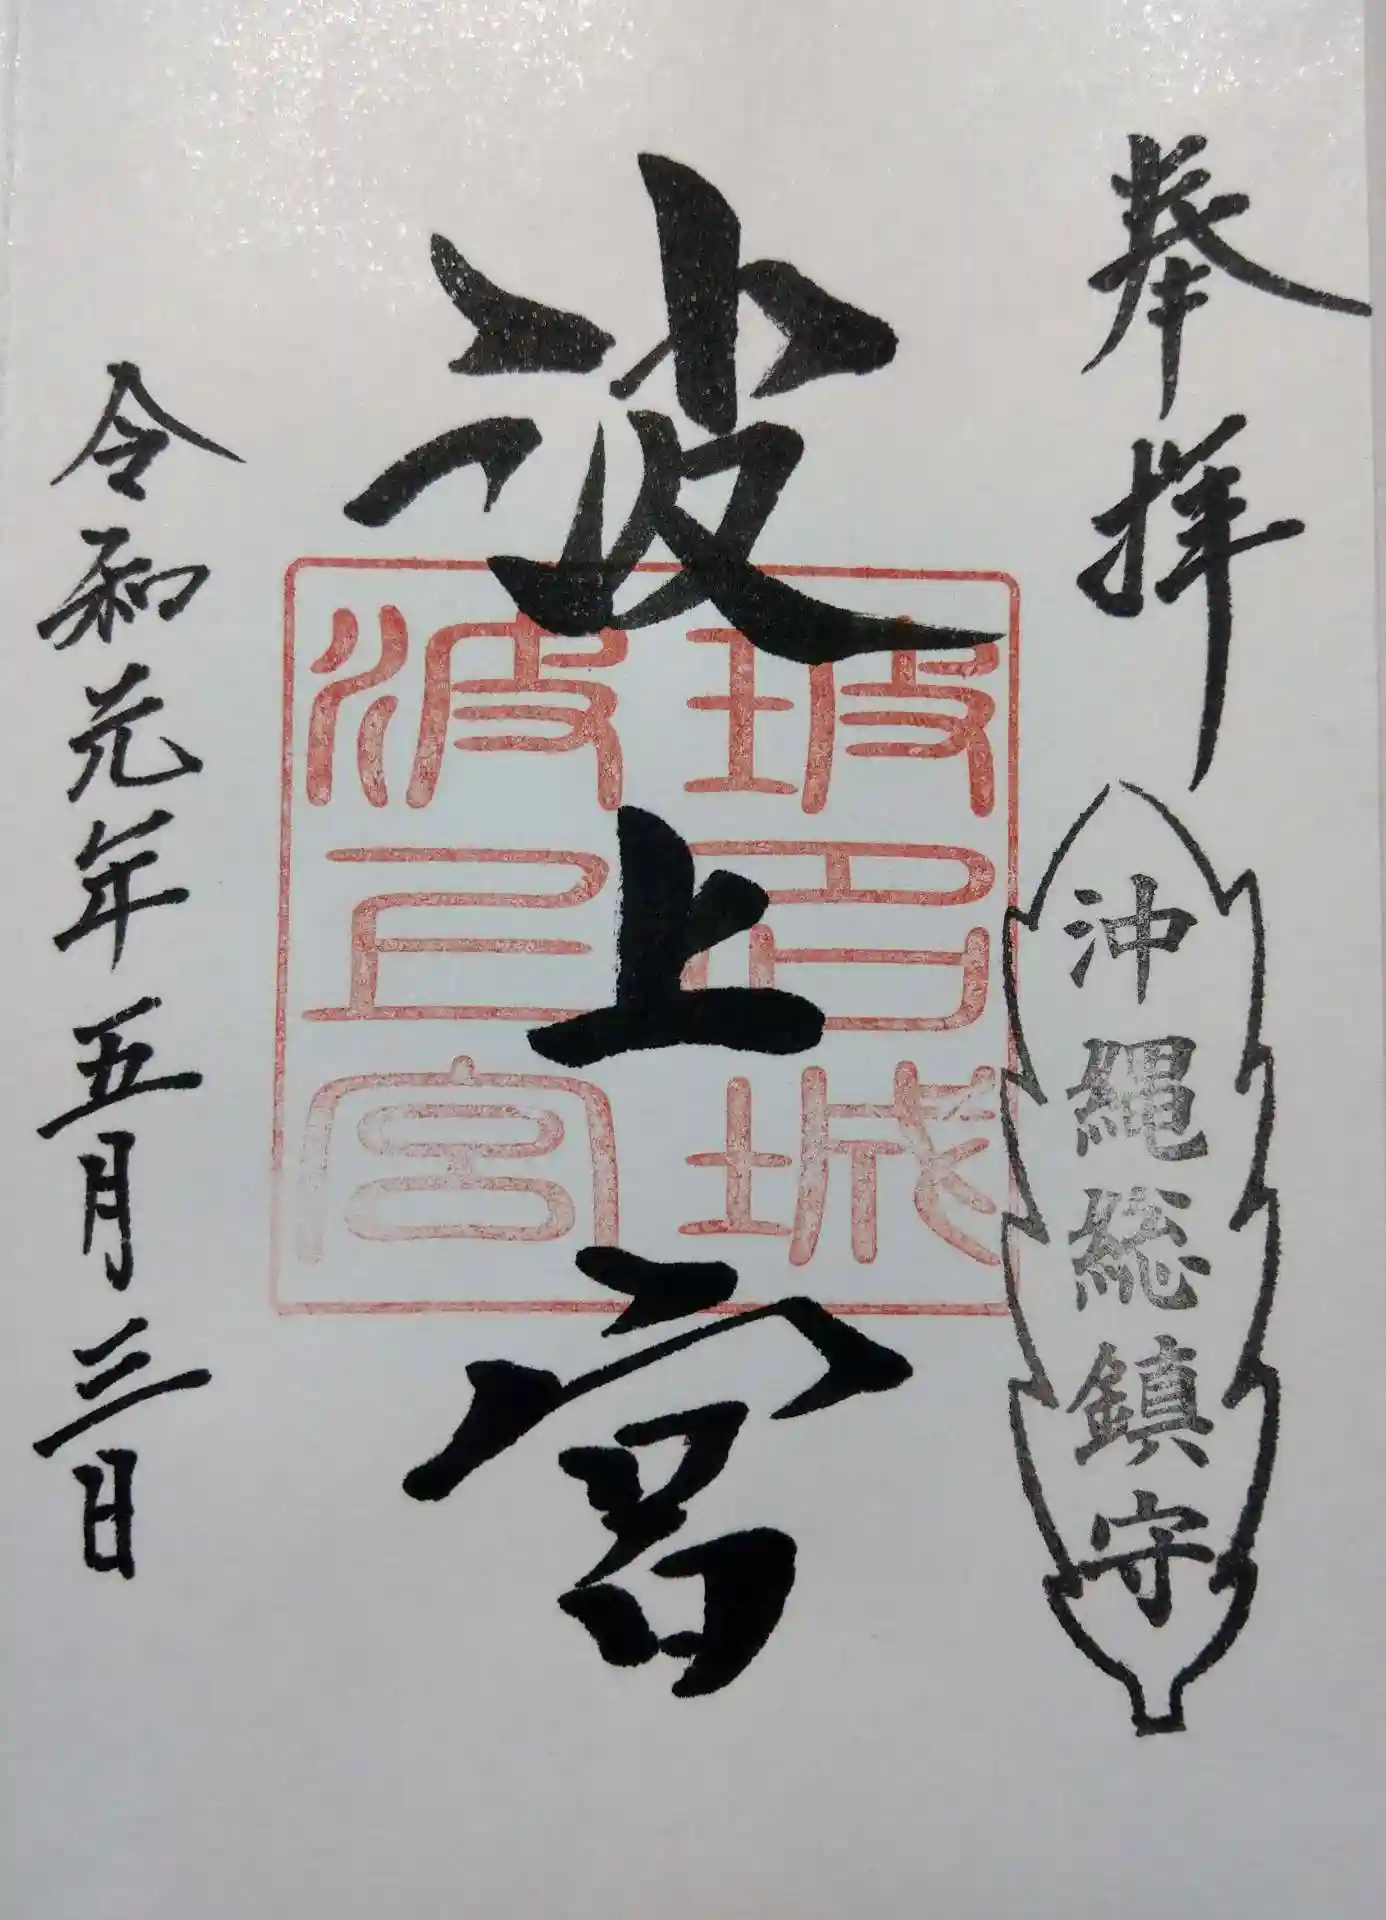 奉拝
沖縄総鎮守
波上宮
坡巴城
波上宮
令和元年五月三日